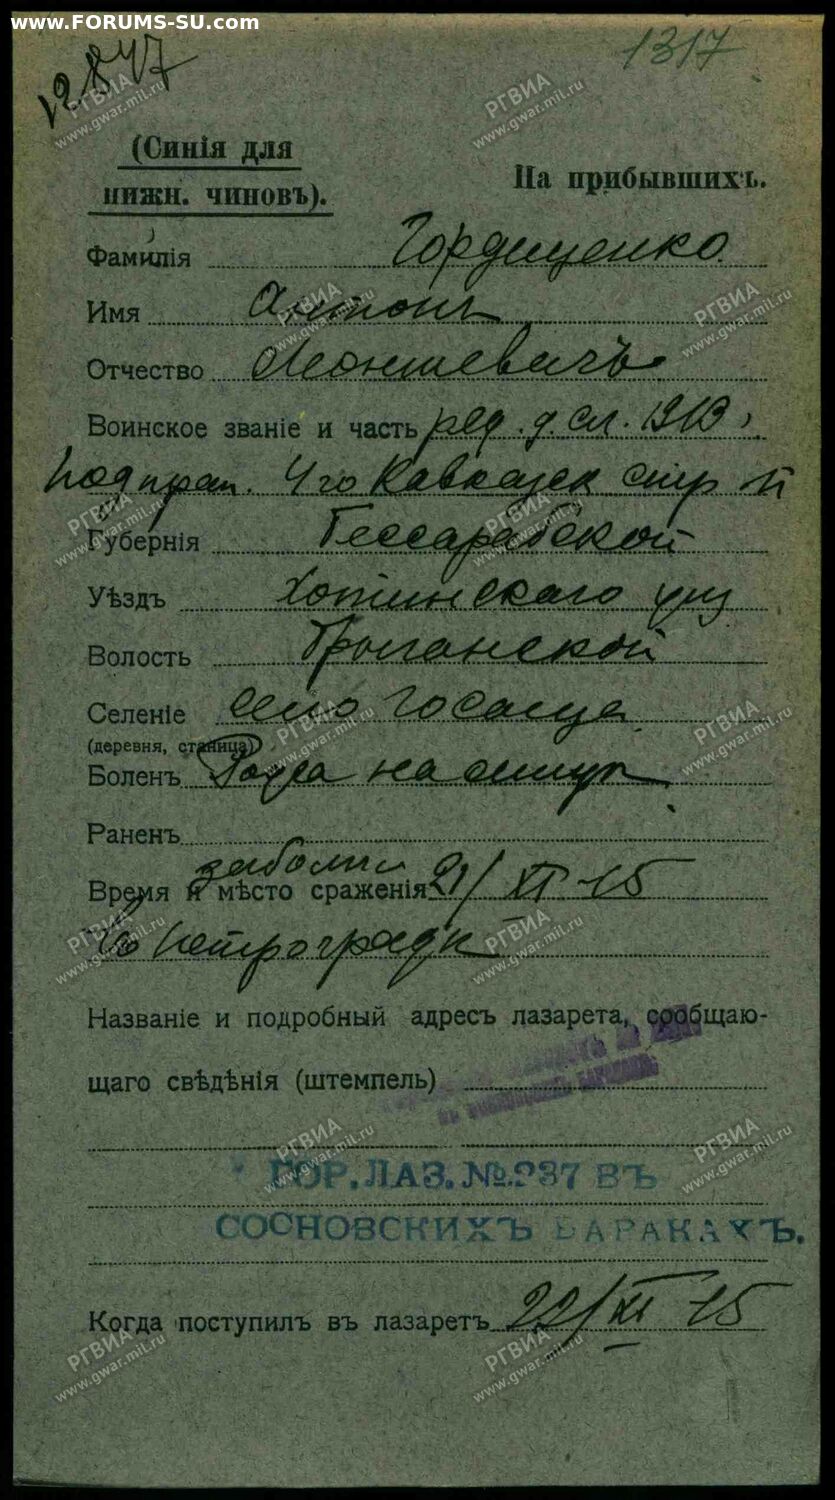 www.FORUMS-SU.com
12847
1317
(Синія для
нижн. чиновъ).
На прибывшихъ.
Фамилія Гордиценко
Имя Антонъ
Отчество Леонтьевичъ
Воинское званіе и часть ряд. д. сл. 1913
Подпрап. 4го Кавказск стр п
Губернія Бессарабской
Уѣздъ Хотинскаго уѣз
Волость Грыганской
Селеніе село
(деревня, станица)
Боленъ Рожа на
Раненъ
заболѣлъ
Время и мѣсто сраженія 21/XI 15
въ Петроградѣ
Названіе и подробный адресъ лазарета, сообщаю-
щаго свѣдѣнія (штемпель)
ГОР. ЛАЗ. №.237 ВЪ
СОСНОВСКИХЪ БАРАКАХЪ.
Когда поступилъ въ лазаретъ 22/XI 15
РГВИА
www.gwar.mil.ru